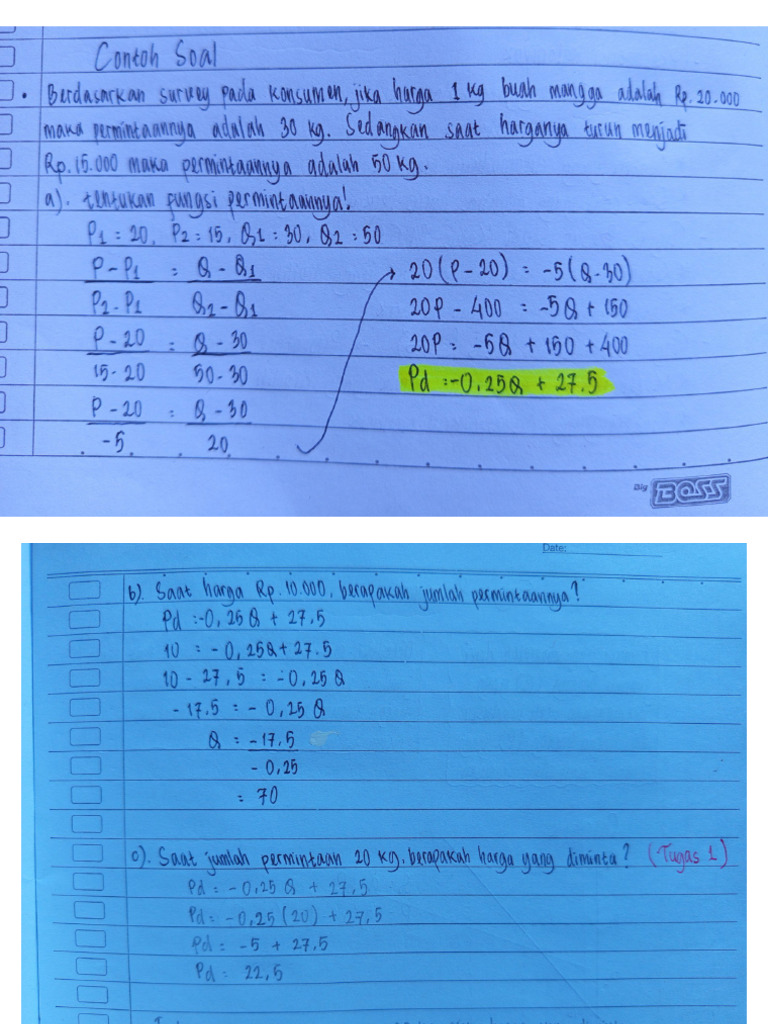 Contoh Soal
• Berdasarkan survey pada konsumen, jika harga 1 kg buah mangga adalah Rp. 20.000
maka permintaannya adalah 30 kg. Sedangkan saat harganya turun menjadi
Rp. 15.000 maka permintaannya adalah 50 kg.
a). tentukan fungsi permintaannya!
P1 = 20, P2 = 15, Q1 = 30, Q2 = 50
P - P1 = Q - Q1
P2 - P1 Q2 - Q1
P - 20 = Q - 30
15 - 20 50 - 30
P - 20 = Q - 30
-5 20
20 (P - 20) = -5 (Q - 30)
20P - 400 = -5Q + 150
20P = -5Q + 150 + 400
Pd = -0,25Q + 27.5
Big BOSS
Date:
b). Saat harga Rp. 10.000, berapakah jumlah permintaannya?
Pd = -0,25Q + 27,5
10 = -0,25Q + 27.5
10 - 27,5 = -0,25Q
-17.5 = -0,25Q
Q = -17.5
-0,25
= 70
c). Saat jumlah permintaan 20 kg, berapakah harga yang diminta? (Tugas 1)
Pd = -0,25Q + 27,5
Pd = -0,25 (20) + 27,5
Pd = -5 + 27,5
Pd = 22,5